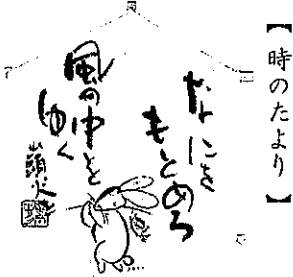 【時のたより】
なにを
もとめる
風の中を
ゆく
山頭火